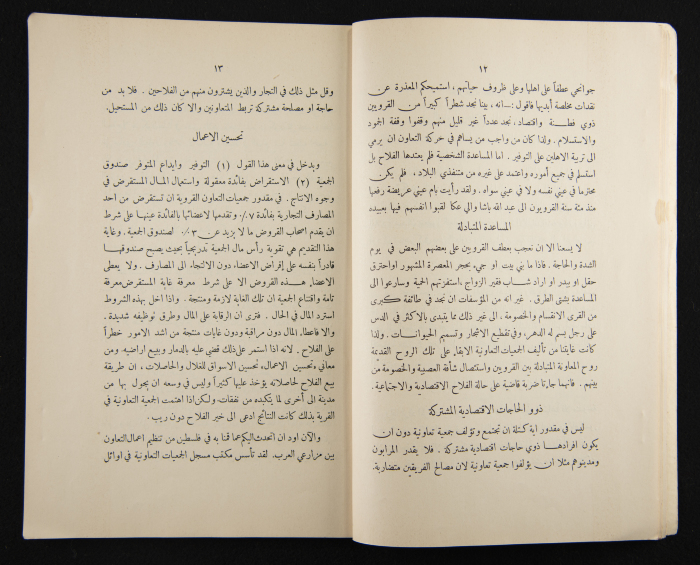 ١٢
جوانحي عطفاً على اهلها وعلى ظروف حياتهم ، استميحكم المعذرة عن
نقدات مخلصة أبديها فأقول :ــانه ، بينا نجد شطراً كبيراً من القرويين
ذوي فطنة واقتصاد ، نجد عدداً غير قليل منهم وقفوا وقفة الجمود
والاستسلام . ولذا كان من واجب من يساهم في حركة التعاون ان يرمي
الى تربية الاهلين على التوفير . اما المساعدة الشخصية فلم يعتدها الفلاح بل
استسلم في جميع أموره واعتمد على غيره من متنفذي البلاد ، فلم يكن
محترما في عيني نفسه ولا في عيني سواه . ولقد رأيت بأم عيني عريضة رفعها
منذ مئة سنة القرويون الى عبد الله باشا والي عكا لقبوا انفسهم فيها بعبيده
المساعدة المتبادلة
لا يسعنا الا ان نعجب بعطف القرويين على بعضهم البعض في يوم
الشدة والحاجة . فاذا ما بني بيت او جيء بحجر المعصرة المشهور او احترق
حقل او بيدر او اراد شاب فقير الزواج ، استفزتهم الحمية وسارعوا الى
المساعدة بشتى الطرق . غير انه من المؤسفات ان نجد في طائفة كبرى
من القرى الانقسام والخصومة . الى غير ذلك مما يتبدى بالاكثر في الدس
على رجل بسم له الدهر ، وفي تقطيع الاشجار وتسميم الحيوانات . ولذا
كانت غايتنا من تأليف الجمعيات التعاونية الابقاء على تلك الروح القديمة
روح المعاونة المتبادلة بين القرويين واستئصال شأفة العصبية والخصومة من
بينهم . فانهما جارتا ضربة قاضية على حالة الفلاح الاقتصادية والاجتماعية .
ذوو الحاجات الاقتصادية المشتركة
ليس في مقدور اية كتلة ان تجتمع وتؤلف جمعية تعاونية دون ان
يكون افرادها ذوي حاجات اقتصادية مشتركة . فلا يقدر المرابون
ومدينوهم مثلا ان يؤلفوا جمعية تعاونية لان مصالح الفريقين متضاربة .
١٣
وقل مثل ذلك في التجار والذين يشترون منهم من الفلاحين . فلا بد من
حاجة او مصلحة مشتركة تربط المتعاونين والا كان ذلك من المستحيل .
تحسين الاعمال
ويدخل في معنى هذا القول (١) التوفير وايداع المتوفر صندوق
الجمعية (٢) الاستقراض بفائدة معقولة واستعمال المال المستقرض في
وجوه الانتاج . في مقدور جمعيات التعاون القروية ان تستقرض من احد
المصارف التجارية بفائدة ٧٪ وتقدمها لاعضائها بالفائدة عينها على شرط
ان يقدم اصحاب القروض ما لا يزيد عن ٣٪ لصندوق الجمعية . وغاية
هذا التقديم هي تقوية رأس مال الجمعية تدريجياً بحيث يصبح صندوقها
قادراً بنفسه على إقراض الاعضاء دون الالتجاء الى المصارف . ولا يعطى
الاعضاء هذه القروض الا على شرط معرفة غاية المستقرض معرفة
تامة واقتناع الجمعية ان تلك الغاية لازمة ومنتجة . واذا اخل بهذه الشروط
استرد المال في الحال . فترى ان الرقابة على المال وطرق توظيفه شديدة .
والا فاعطاء المال دون مراقبة ودون غايات منتجة من اشد الامور خطراً
على الفلاح . لانه اذا استمر على ذلك قضي عليه بالدمار وببيع اراضيه . ومن
معاني «تحسين الاعمال» تحسين الاسواق للغلال والحاصلات ، ان طريقة
بيع الفلاح لحاصلاته يؤخذ عليها كثيراً وليس في وسعه ان يجول بها من
مدينة الى أخرى لما يتكبده من نفقات ولكن اذا اهتمت الجمعية التعاونية في
القرية بذلك كانت النتائج ادعى الى خير الفلاح دون ريب .
والآن اود ان اتحدث اليكم عما قمنا به في فلسطين من تنظيم اعمال التعاون
بين مزارعي العرب . لقد تأسس مكتب مسجل الجمعيات التعاونية في اوائل